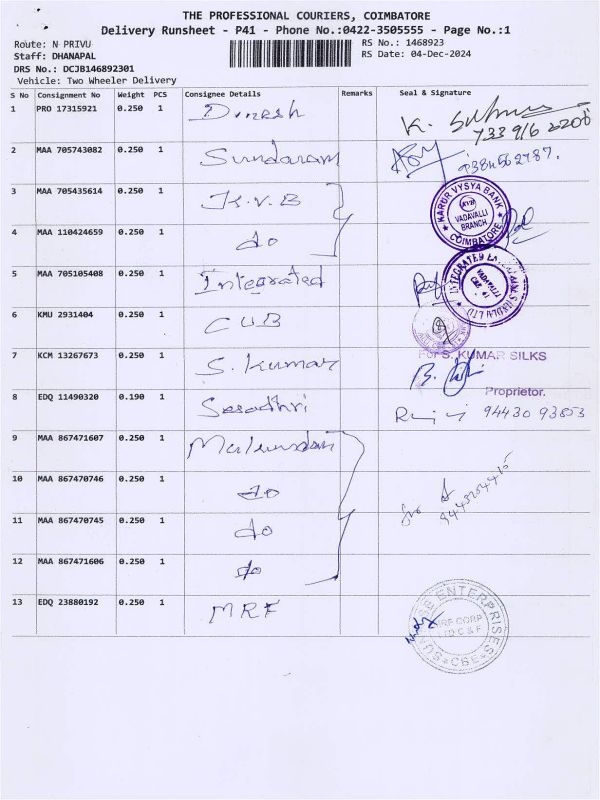 THE PROFESSIONAL COURIERS, COIMBATORE
Delivery Runsheet - P41 - Phone No.:0422-3505555 - Page No.:1
Route: N PRIVU
RS No.: 1468923
Staff: DHANAPAL
RS Date: 04-Dec-2024
DRS No.: DCJB146892301
Vehicle: Two Wheeler Delivery
S No Consignment No Weight PCS Consignee Details Remarks Seal & Signature
1 PRO 17315921 0.250 1 Dinesh K.
2 MAA 705743082 0.250 1 Sundaram
3 MAA 705435614 0.250 1 K.V.B
KARUR VYSYA BANK
KVB
VADAVALLI
BRANCH
COIMBATORE
4 MAA 110424659 0.250 1 do
5 MAA 705105408 0.250 1 Integrated
INTEGRATED
VADAVALLI
CBE - 41
6 KMU 2931404 0.250 1 CUB
7 KCM 13267673 0.250 1 S. Kumar For S. KUMAR SILKS
Proprietor.
8 EDQ 11490320 0.190 1 Sesadhri 94430 93853
9 MAA 867471607 0.250 1
10 MAA 867470746 0.250 1 do
11 MAA 867470745 0.250 1 do
12 MAA 867471606 0.250 1 do
13 EDQ 23880192 0.250 1 MRF
ENTERPRISES
MRF CORP
LTD C & F
CBE